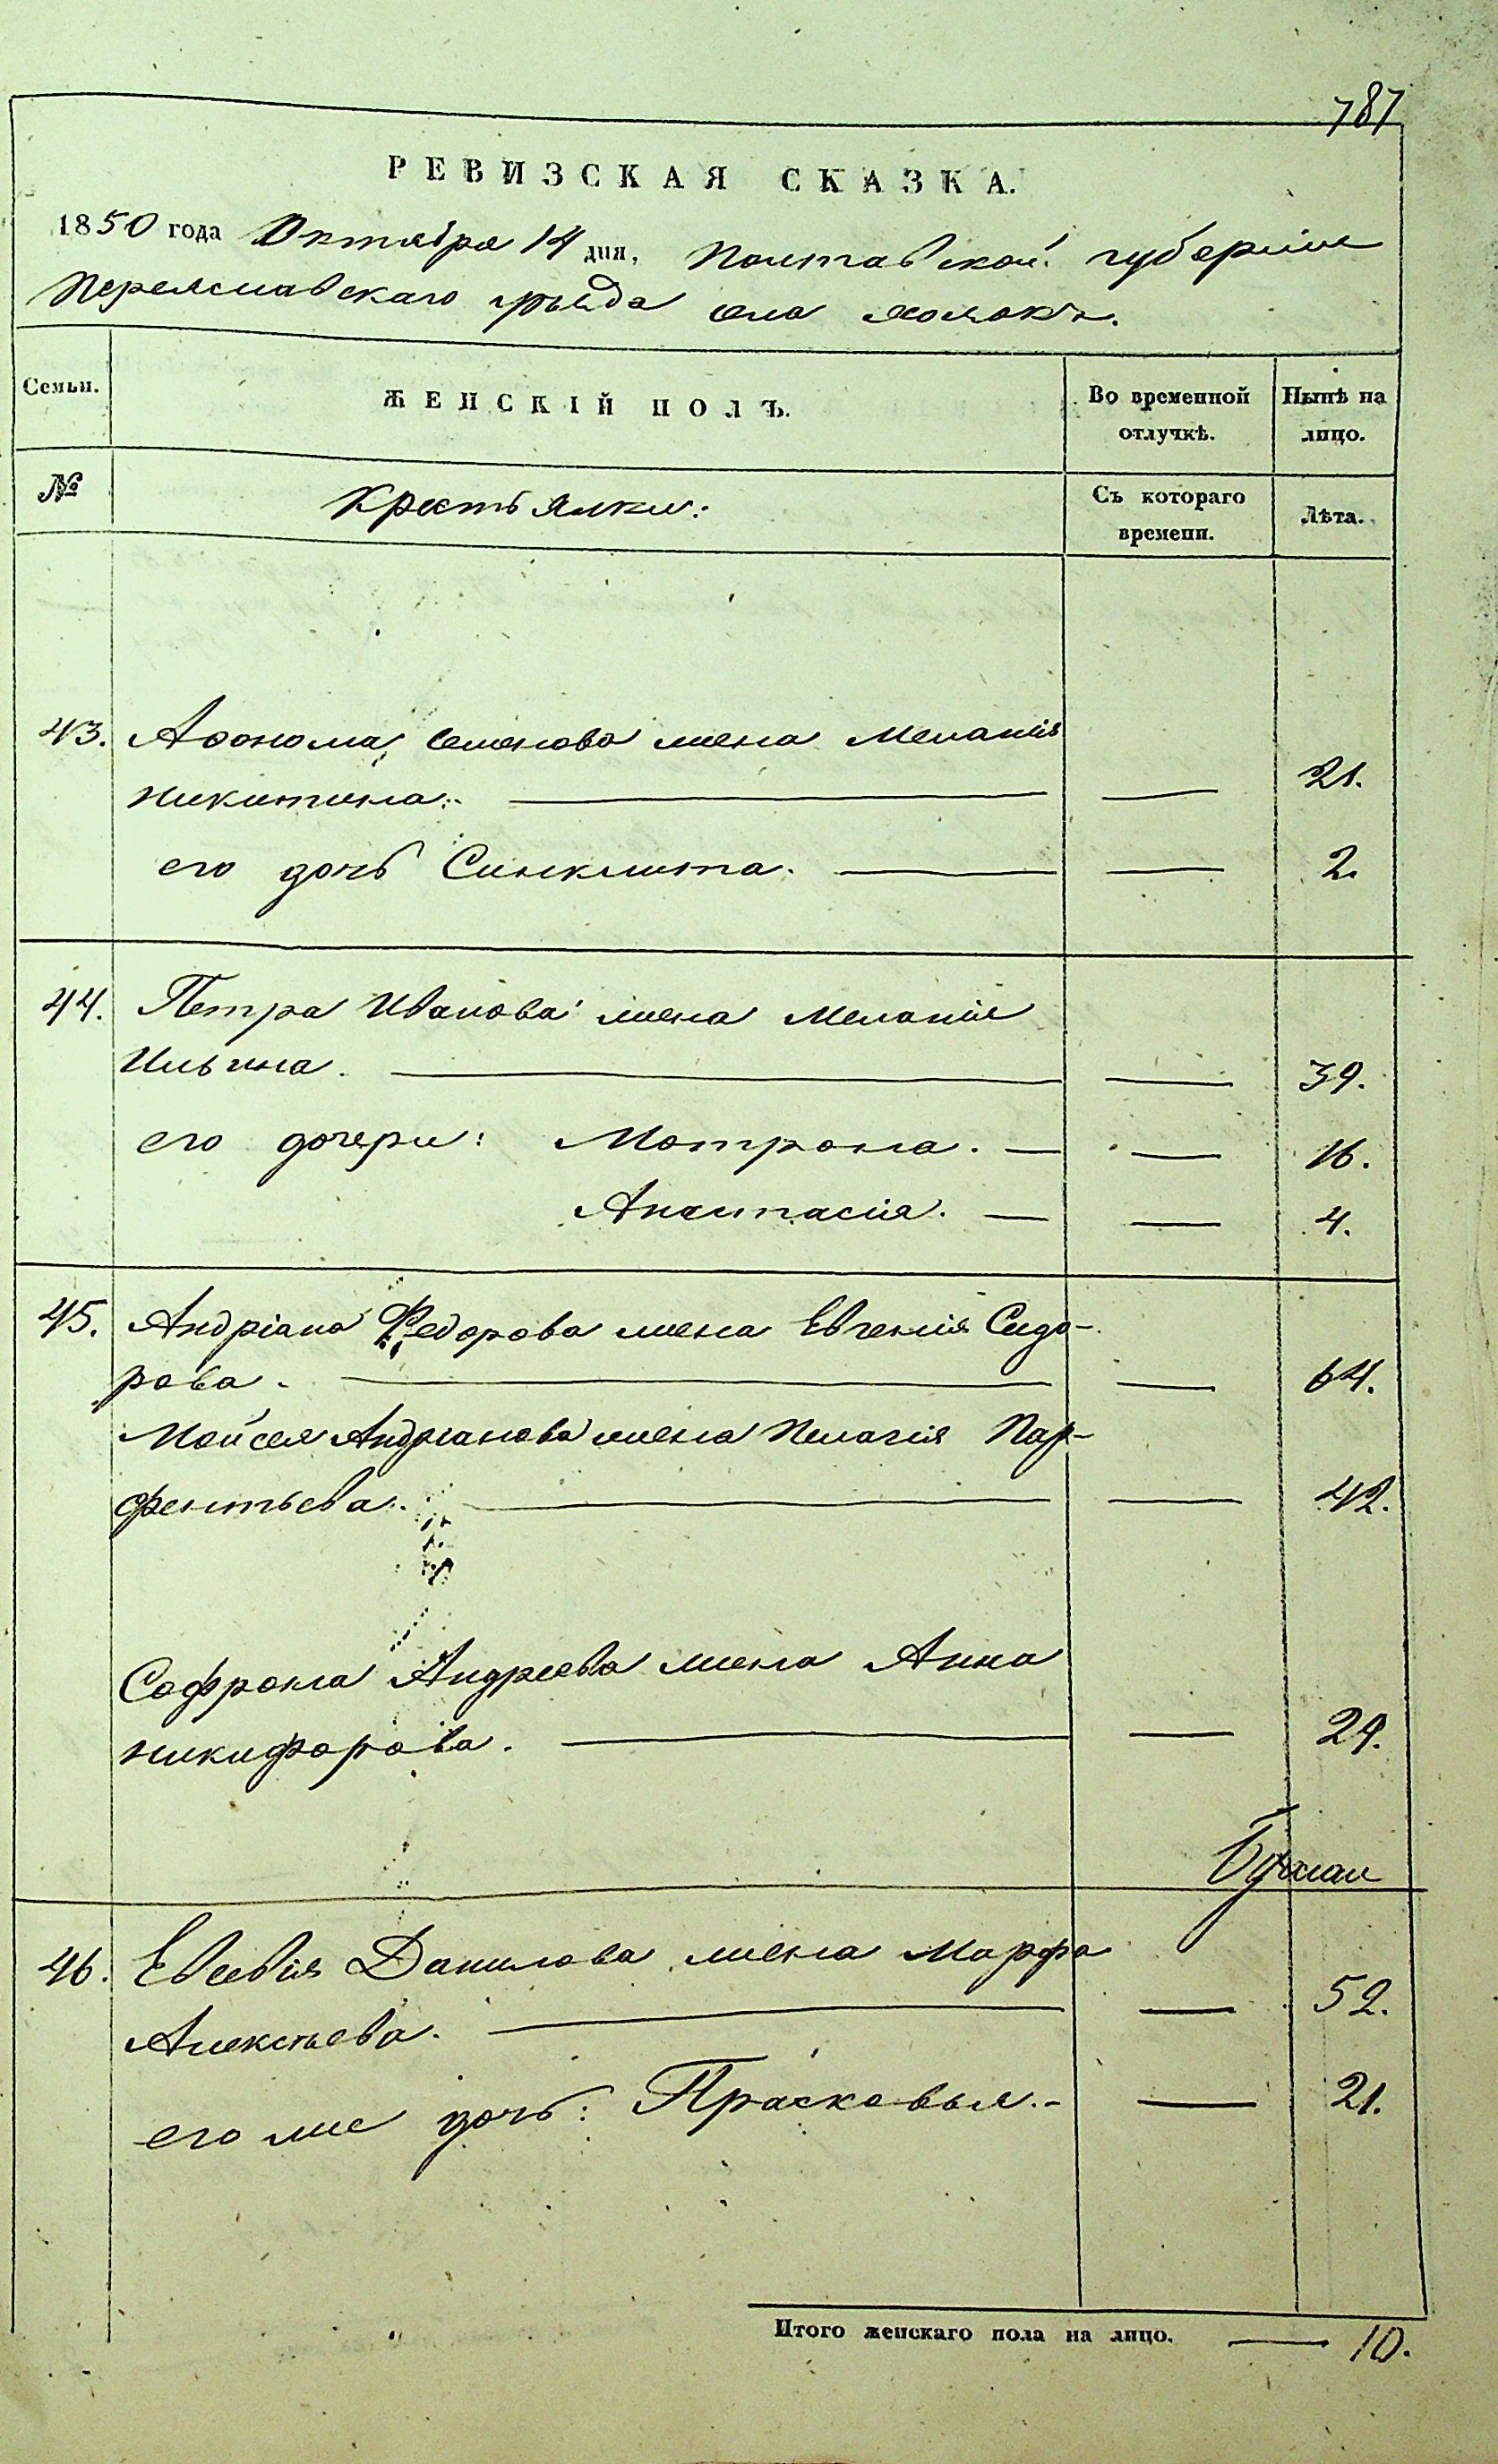 787
РЕВИЗСКАЯ СКАЗКА.
1850 года Октября 14 дня, Полтавской губерніи
Переяславскаго уѣзда села Хоцокъ.
Семьи.
ЖЕНСКІЙ ПОЛЪ.
Во временной отлучкѣ.
Нынѣ на лицо.
№
Крестьянки:
Съ котораго времени.
Лѣта.
43. Афонома Семенова жена Меланія
Никитина. — — 21.
его дочь Синклита. — — 2.
44. Петра Иванова жена Меланія
Ильина. — — 39.
его дочери: Мотрона. — — 16.
Анастасія. — — 4.
45. Андріана Федорова жена Евгенія Сидо-
рова. — — 64.
Мойсея Андріанова жена Пелагія Пар-
фентьева. — — 42.
Софрона Андреева жена Анна
Никифорова. — — 29.
46. Евсевія Данилова жена Марфа
Алексѣева. — — 52.
его же дочь: Прасковья. — — 21.
Итого женскаго пола на лицо. — 10.